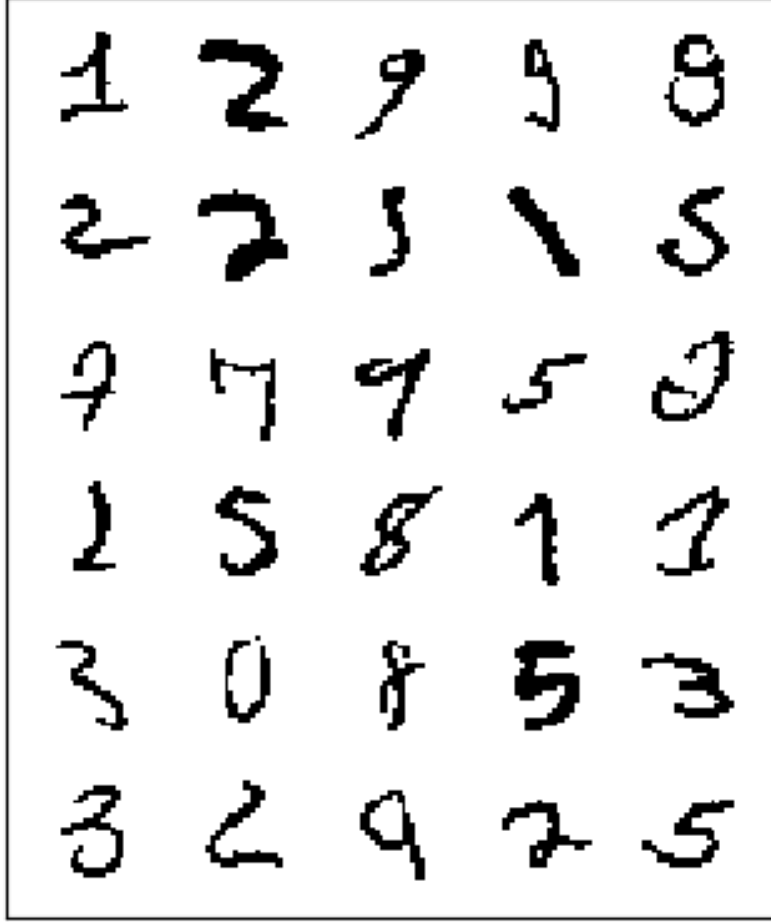 1 2 9 9 8
2 2 5 1 5
7 7 9 5
2 5 8 1 1
3 0 8 5 3
3 2 9 2 5